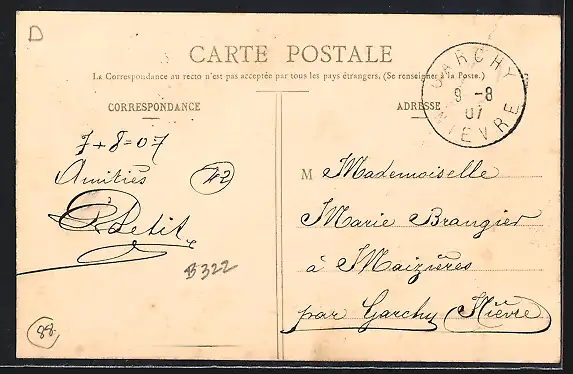 D
CARTE POSTALE
La Correspondance au recto n'est pas acceptée par tous les pays étrangers. (Se renseigner à la Poste.)
CORRESPONDANCE
ADRESSE
GARCHY
9 -8
07
NIEVRE
7+8=07
Amitiés
Petit
42
B322
88.
M Mademoiselle
Marie Brangier
à Maizières
par Garchy (Nièvre)